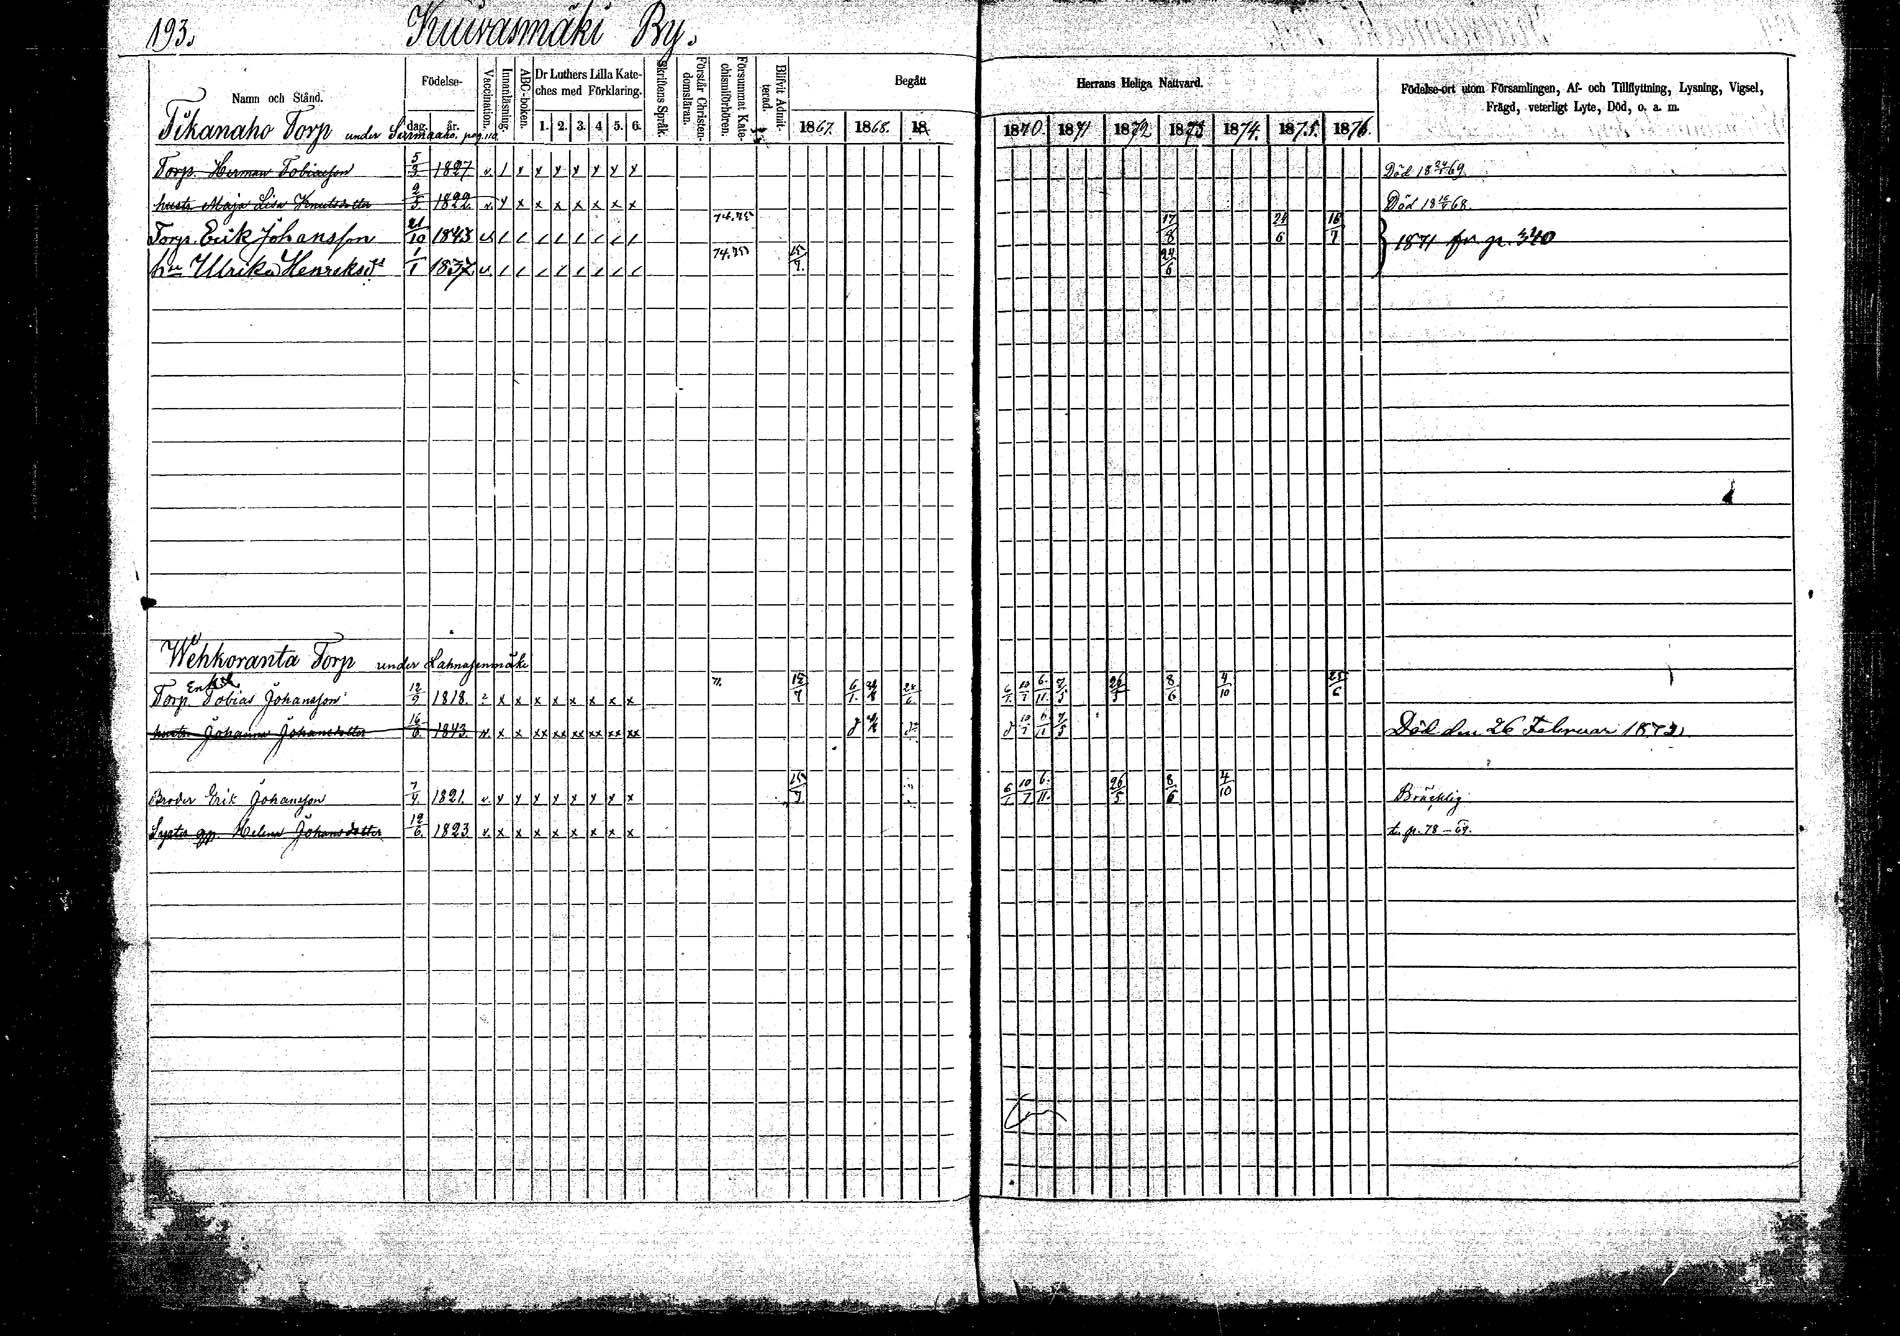 193. Kuivasmäki By.
Namn och Stånd. Födelse- dag. år. Vaccination. Innanläsning. ABC-boken. Dr Luthers Lilla Kateches med Förklaring. 1. 2. 3. 4 5. 6. Skriftens Språk. Förstår Christendomsläran. Försummat Katechismiförhören. Blifvit Admitterad. Begått 1867. 1868. 18 Herrans Heliga Nattvard. 1870. 1871 1872 1873 1874. 1875. 1876. Födelse-ort utom Församlingen, Af- och Tillflyttning, Lysning, Vigsel, Frägd, veterligt Lyte, Död, o. a. m.
Tikanaho Torp under Sirrmaaho, pag. 110
Torp. Herman Tobiasson 5/3 1827 v. / x x x x x x x Död 18 24/5 69
hustr Maja Lisa Knutsdotter 2/5 1822. v. x x x x x x x x Död 18 68.
Torp. Erik Johansson 21/10 1843 v. / / / / / / / / 74.75 17/8 24/6 16/7 1871 fr. p. 340
hu Ulrika Henriksdr 1/1 1837 v. / / / / / / / / 74.75 15/7. 24/6
Wehkoranta Torp under Lahnasenmäki
Enkl.
Torp Tobias Johansson 12/9 1818. x x x x x x x x 15/7 6/1. 24/6 6/1. 10/7 6./11. 7/5 26/5 8/6 4/10 25/6
hustr Johanna Johansdotter 16/6 1843. v. x x xx xx xx xx xx xx 10/7 6/11 7/5 Död den 26 Februari 1872.
Broder Erik Johansson 7/4 1821. v. x x x x x x x x 15/7 6/1 10/7 6./11. 26/5 8/6 4/10 Bräcklig
Syster gp. Helena Johansdotter 12/6. 1823 v. x x x x x x x x t. p. 78-69.